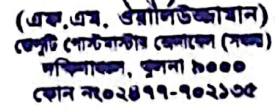 (এস.এম. ওয়াহিউজ্জামান)
ডেপুটি পোস্টমাস্টার জেনারেল (সদর)
দক্ষিণাঞ্চল, খুলনা ৯০০০
ফোন নং০২৪৭৭-৭০২১৩৫